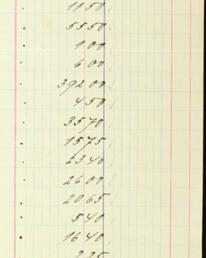 11 50
55 50
1 00
6 00
392 00
4 50
35 70
15 75
23 40
26 00
20 65
5 40
16 40
2 25